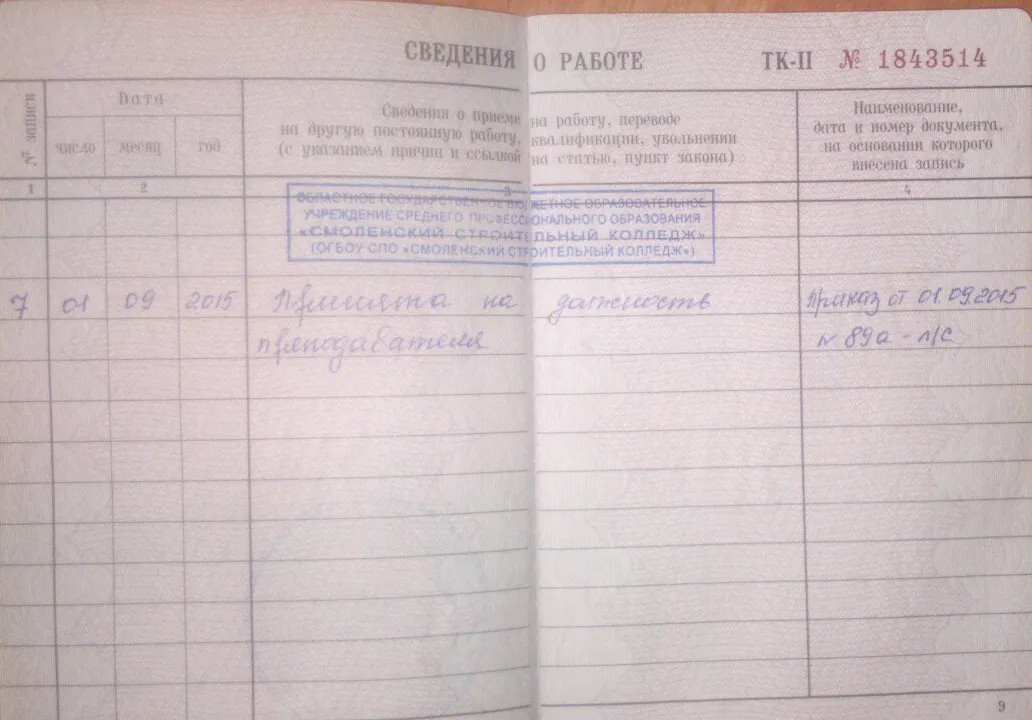 СВЕДЕНИЯ О РАБОТЕ ТК-II № 1843514
№ записи
Дата
число месяц год
Сведения о приеме на работу, переводе
на другую постоянную работу, квалификации, увольнении
(с указанием причин и ссылкой на статью, пункт закона)
Наименование,
дата и номер документа,
на основании которого
внесена запись
1 2 3 4
ОБЛАСТНОЕ ГОСУДАРСТВЕННОЕ БЮДЖЕТНОЕ ОБРАЗОВАТЕЛЬНОЕ
УЧРЕЖДЕНИЕ СРЕДНЕГО ПРОФЕССИОНАЛЬНОГО ОБРАЗОВАНИЯ
«СМОЛЕНСКИЙ СТРОИТЕЛЬНЫЙ КОЛЛЕДЖ»
(ОГБОУ СПО «СМОЛЕНСКИЙ СТРОИТЕЛЬНЫЙ КОЛЛЕДЖ»)
7 01 09 2015 Принята на должность Приказ от 01.09.2015
преподавателя № 89а - л/с
9